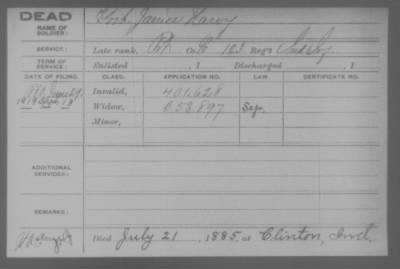 DEAD
NAME OF SOLDIER:
James Harvey
SERVICE:
Late rank, Co. 123 Reg't Ind Inf
TERM OF SERVICE:
Enlisted , 1 Discharged , 1
DATE OF FILING. CLASS. APPLICATION NO. LAW. CERTIFICATE NO.
Invalid, 401.628
Widow, 658.897
Minor,
ADDITIONAL SERVICES:
REMARKS:
Died July 21, 1885, at Clinton, Ind.